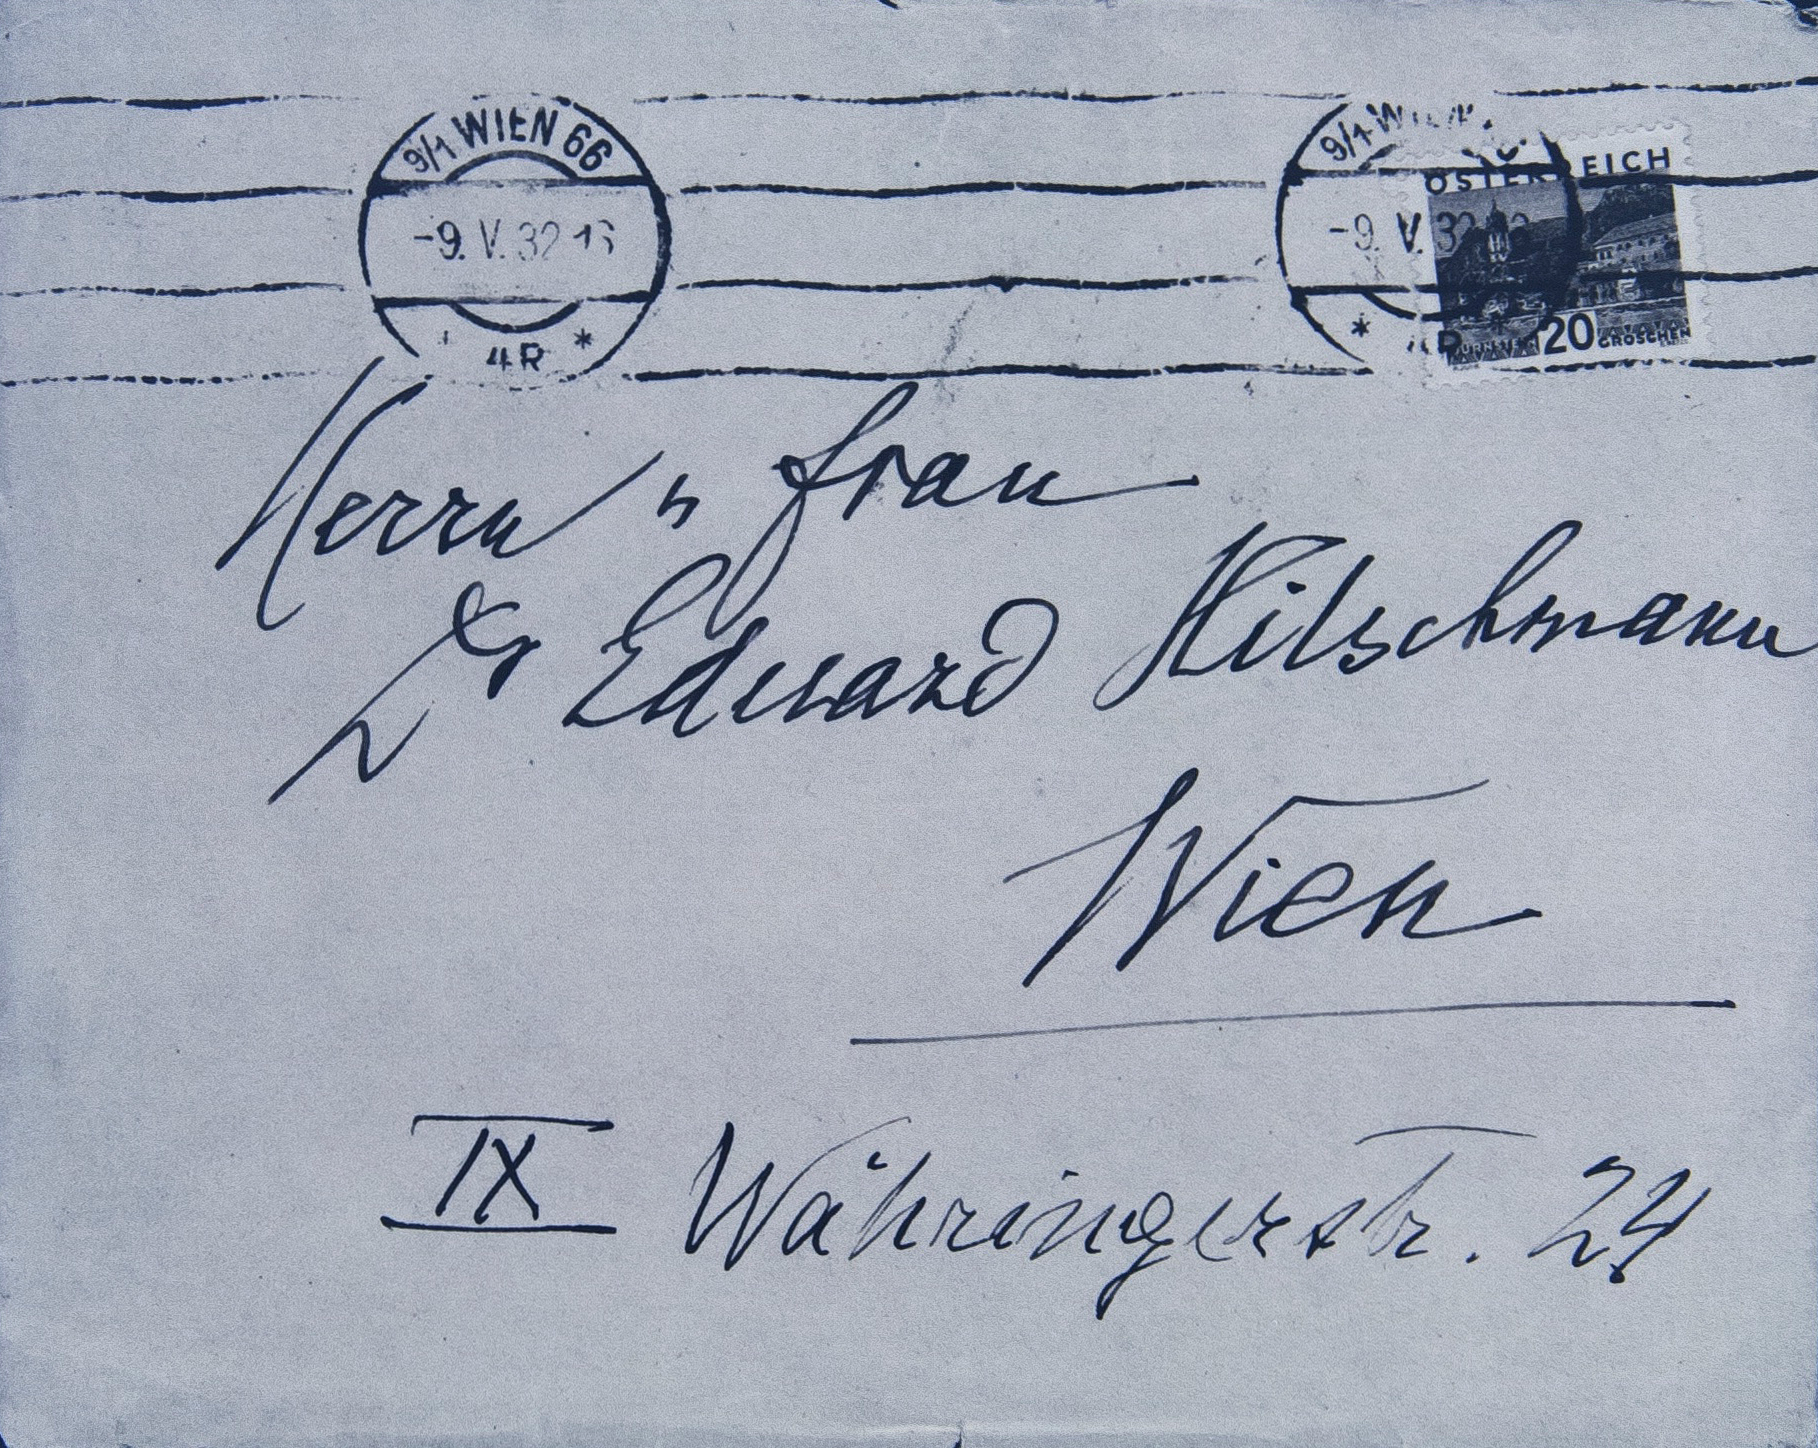 9/1 WIEN 66
-9. V. 32
4R
9/1 WIEN
-9. V. 32
ÖSTERREICH
DÜRNSTEIN 20 GROSCHEN
Herrn u Frau
Dr Eduard Hitschmann
Wien
IX Währingerstr. 24